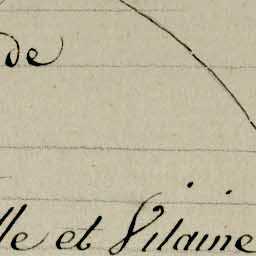 de
lle et Vilaine